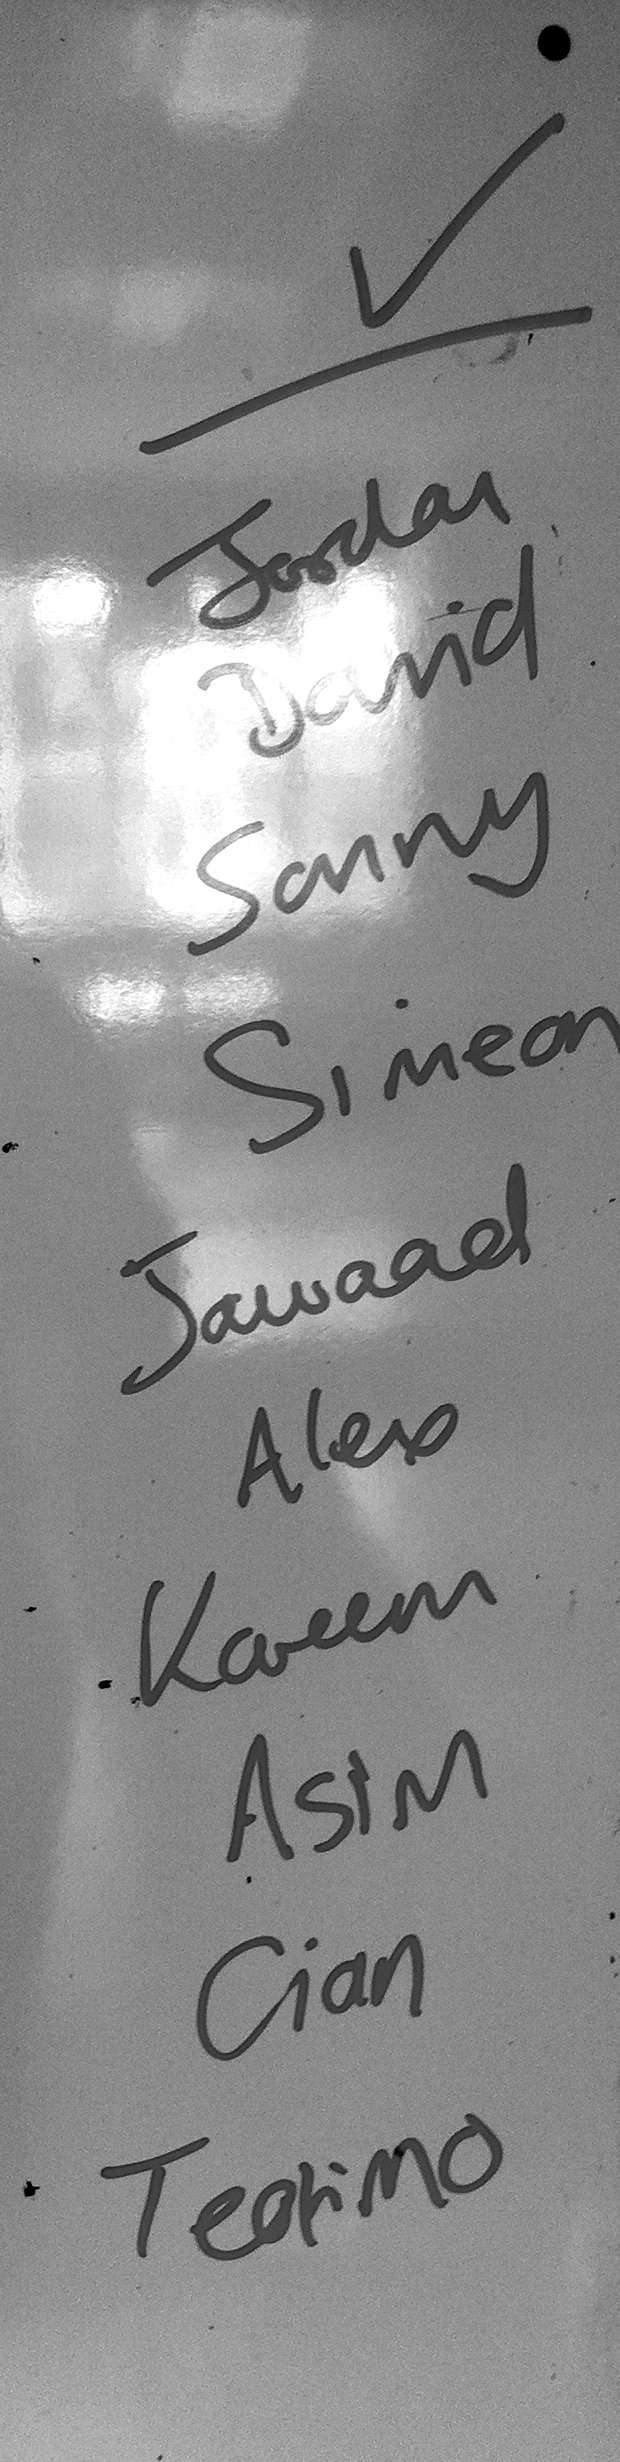 ✓
Jordan
David
Sonny
Simeon
Jawaad
Alex
Kareem
Asim
Cian
Teofimo